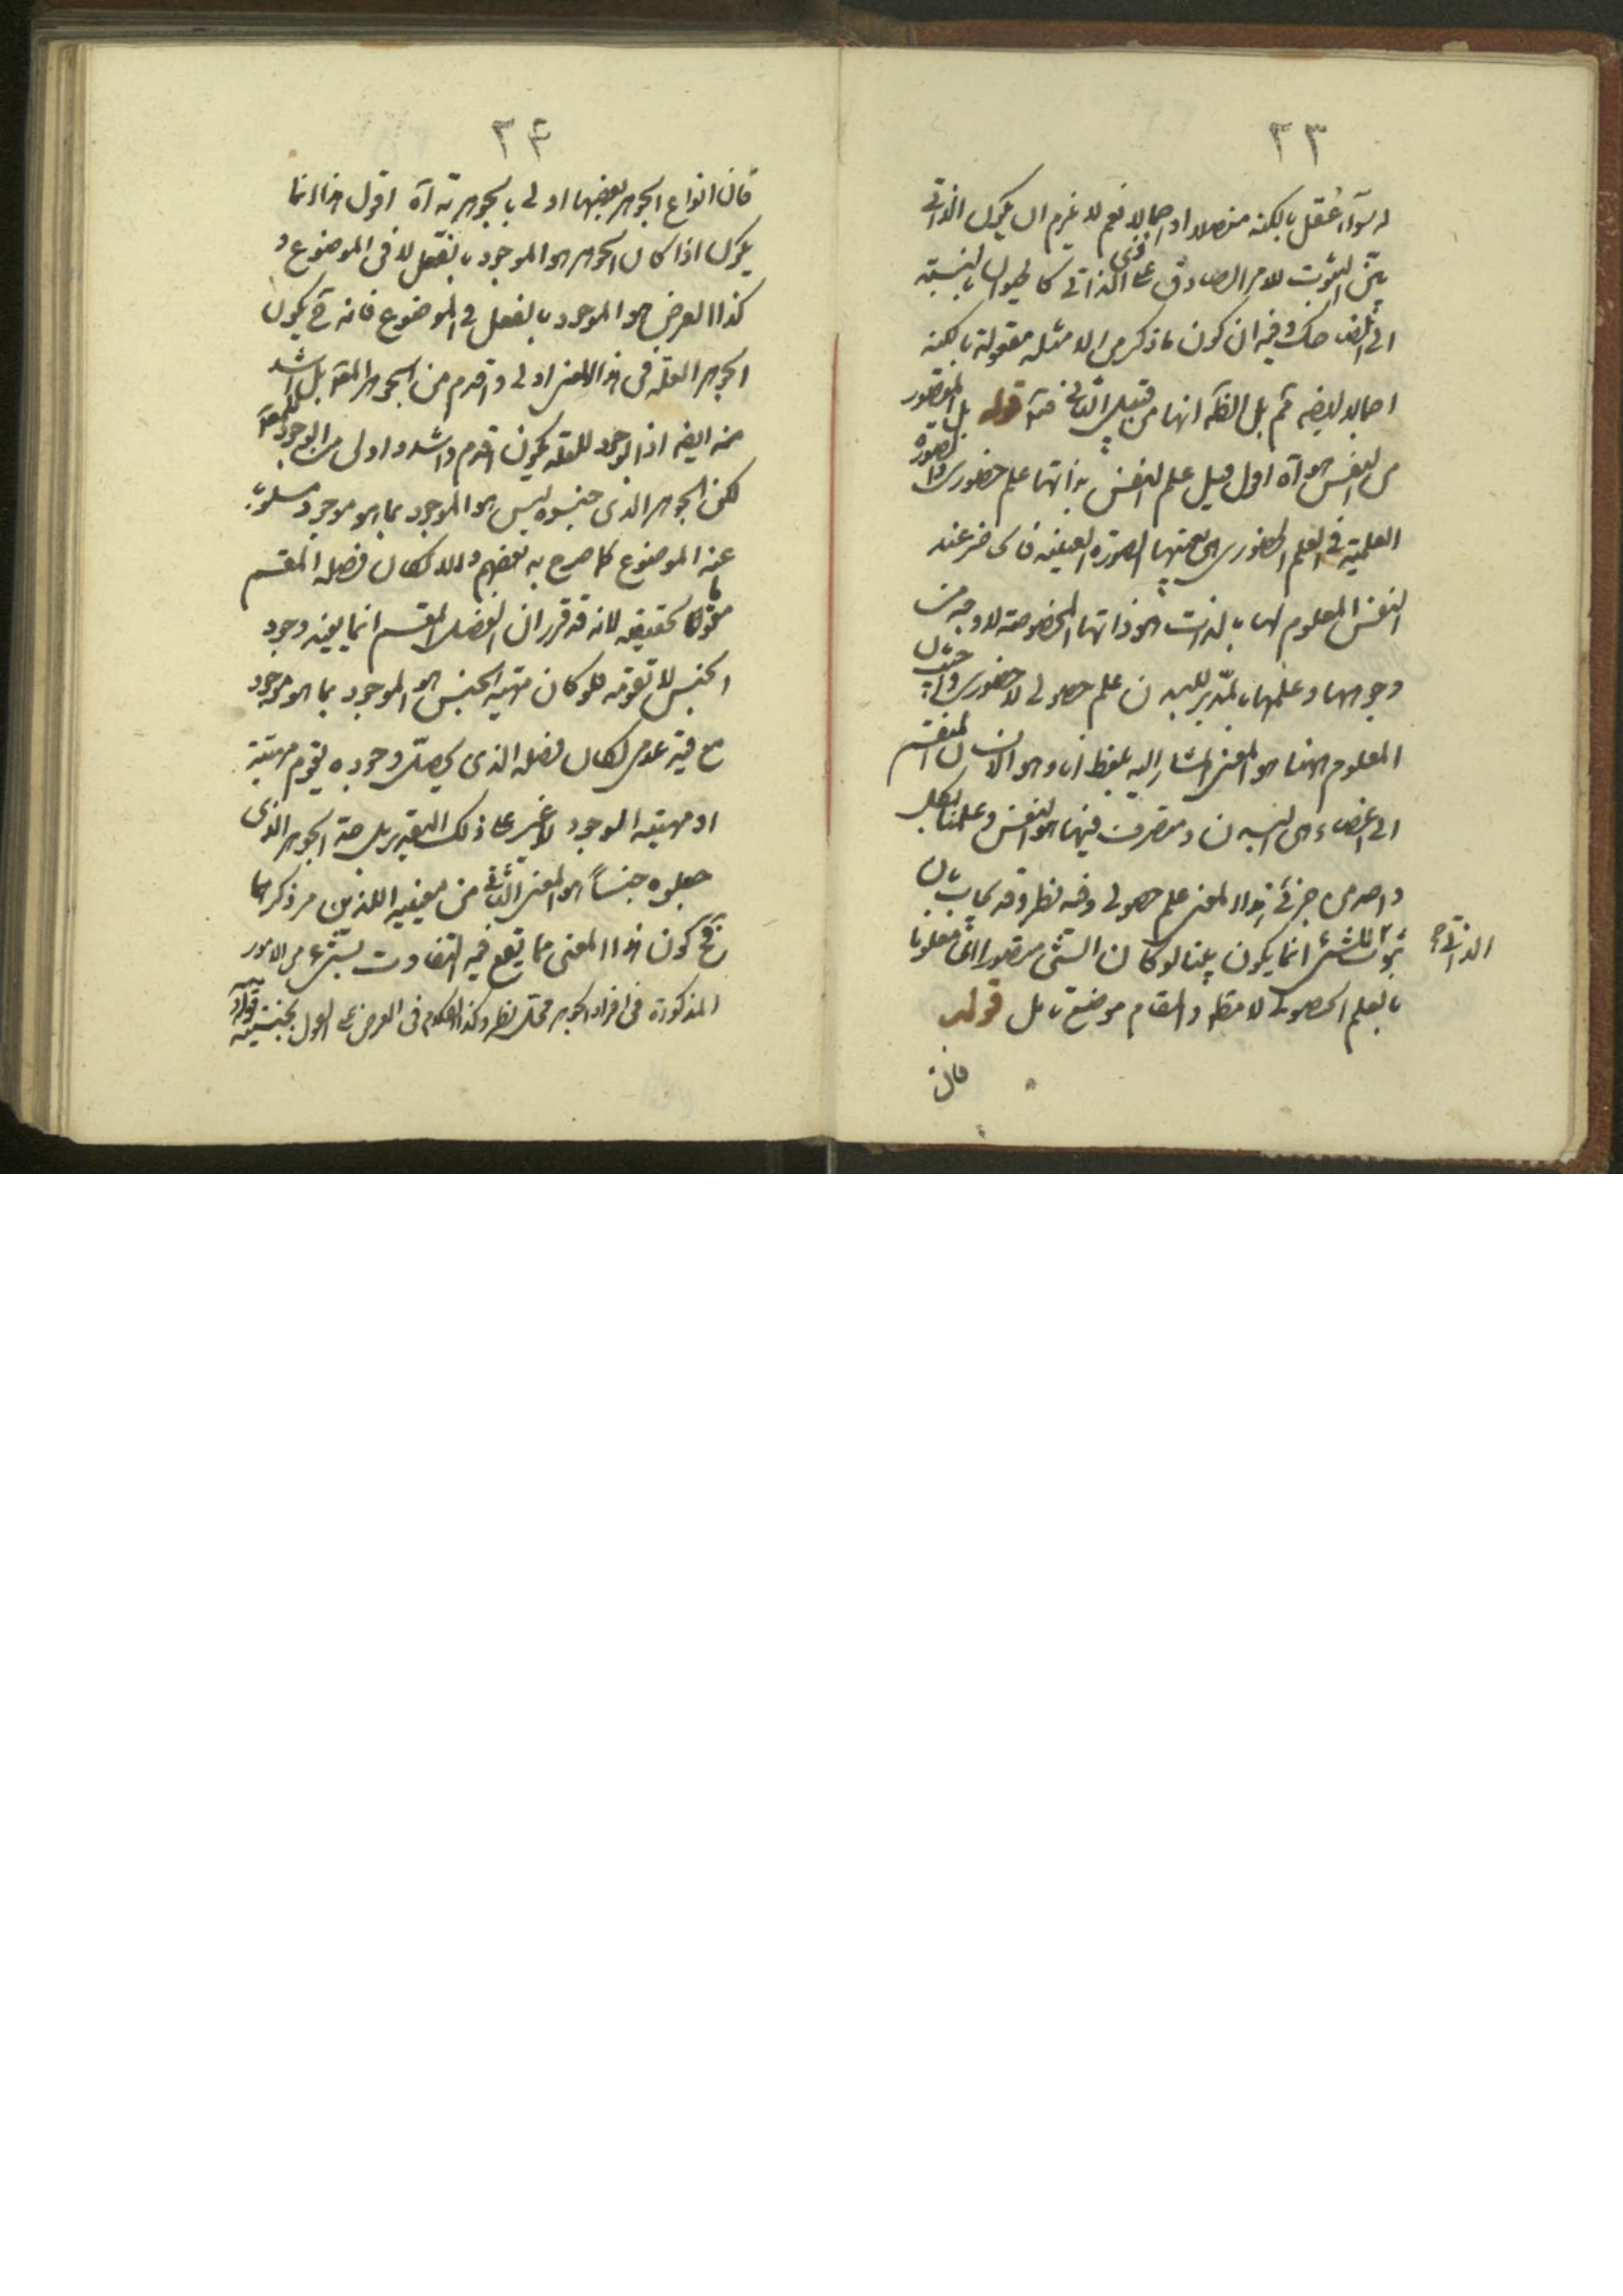 ٢٣
له سوآء عقل بالكنه مفصلا او اجمالا نعم لا يلزم ان يكون الذاتى
بين الثبوت للامر الصادق على الذاتى كالحيوان بالنسبة
الى الضاحك وفيه ان كون ما ذكر من الامثلة معقولة بالكنه
اجمالا ايضا تم بل الظ انها من قبيل الثانى قوله بل المتصور
من النفس هو آه اقول قيل علم النفس بذاتها علم حضورى والصورة
العلمية فى العلم الحضورى هى بعينها الصورة العينية فالحاضر عند
النفس المعلوم لها بالذات هو ذاتها المخصوصة لا وجه من
وجوهها وعلمها بالمدبر للبدن علم حصولى لا حضورى
المعلوم ههنا هو المعنى المشار اليه بلفظ انا وهو الانسان المنقسم
الى اعضاء هى البدن ومتصرف فيها هو النفس وعلمنا بكل
واحد من جزئى هذا المعنى علم حصولى وفيه نظر وقد يجاب بان
ثبوت الذاتى للشئ انما يكون بينا لو كان الشئ متصورا اى معلوما
بالعلم الحصولى لا مطلقا والمقام موضع تامل قوله
فان
٢۴
فان انواع الجوهر بعضها اولى بالجوهرية آه اقول هذا انما
يكون اذا كان الجوهر هو الموجود بالفعل لا فى الموضوع و
كذا العرض هو الموجود بالفعل فى الموضوع فانه ح يكون
الجوهر العلة فى هذا المعنى اولى واقدم من الجوهر المعلول بل اشد
منه ايضا اذ الوجود للعلة يكون اقدم واشد واولى من الوجود للمعلول
لكن الجوهر الذى جنسوه ليس هو الموجود بما هو موجود مسلوب
عنه الموضوع كما صرح به بعضهم والا لكان فصله المقسم
مقوما لحقيقته لانه قد تقرر ان الفصل المقسم انما يفيد وجود
الجنس لا تقومه فلو كان مهية الجنس هو الموجود بما هو موجود
مع قيد عدمى لكان فصله الذى يحصل وجوده يقوم مهيته
اذ مهيته الموجود لا غير على ذلك التقدير بل حد الجوهر الذى
جعلوه جنسا هو المعنى الثانى من معنييه اللذين مر ذكرهما
فح كون هذا المعنى مما يقع فيه التفاوت بشئ من الامور
المذكورة فى افراد الجوهر محل نظر وكذا الكلام فى العرض على القول بجنسيته قوله